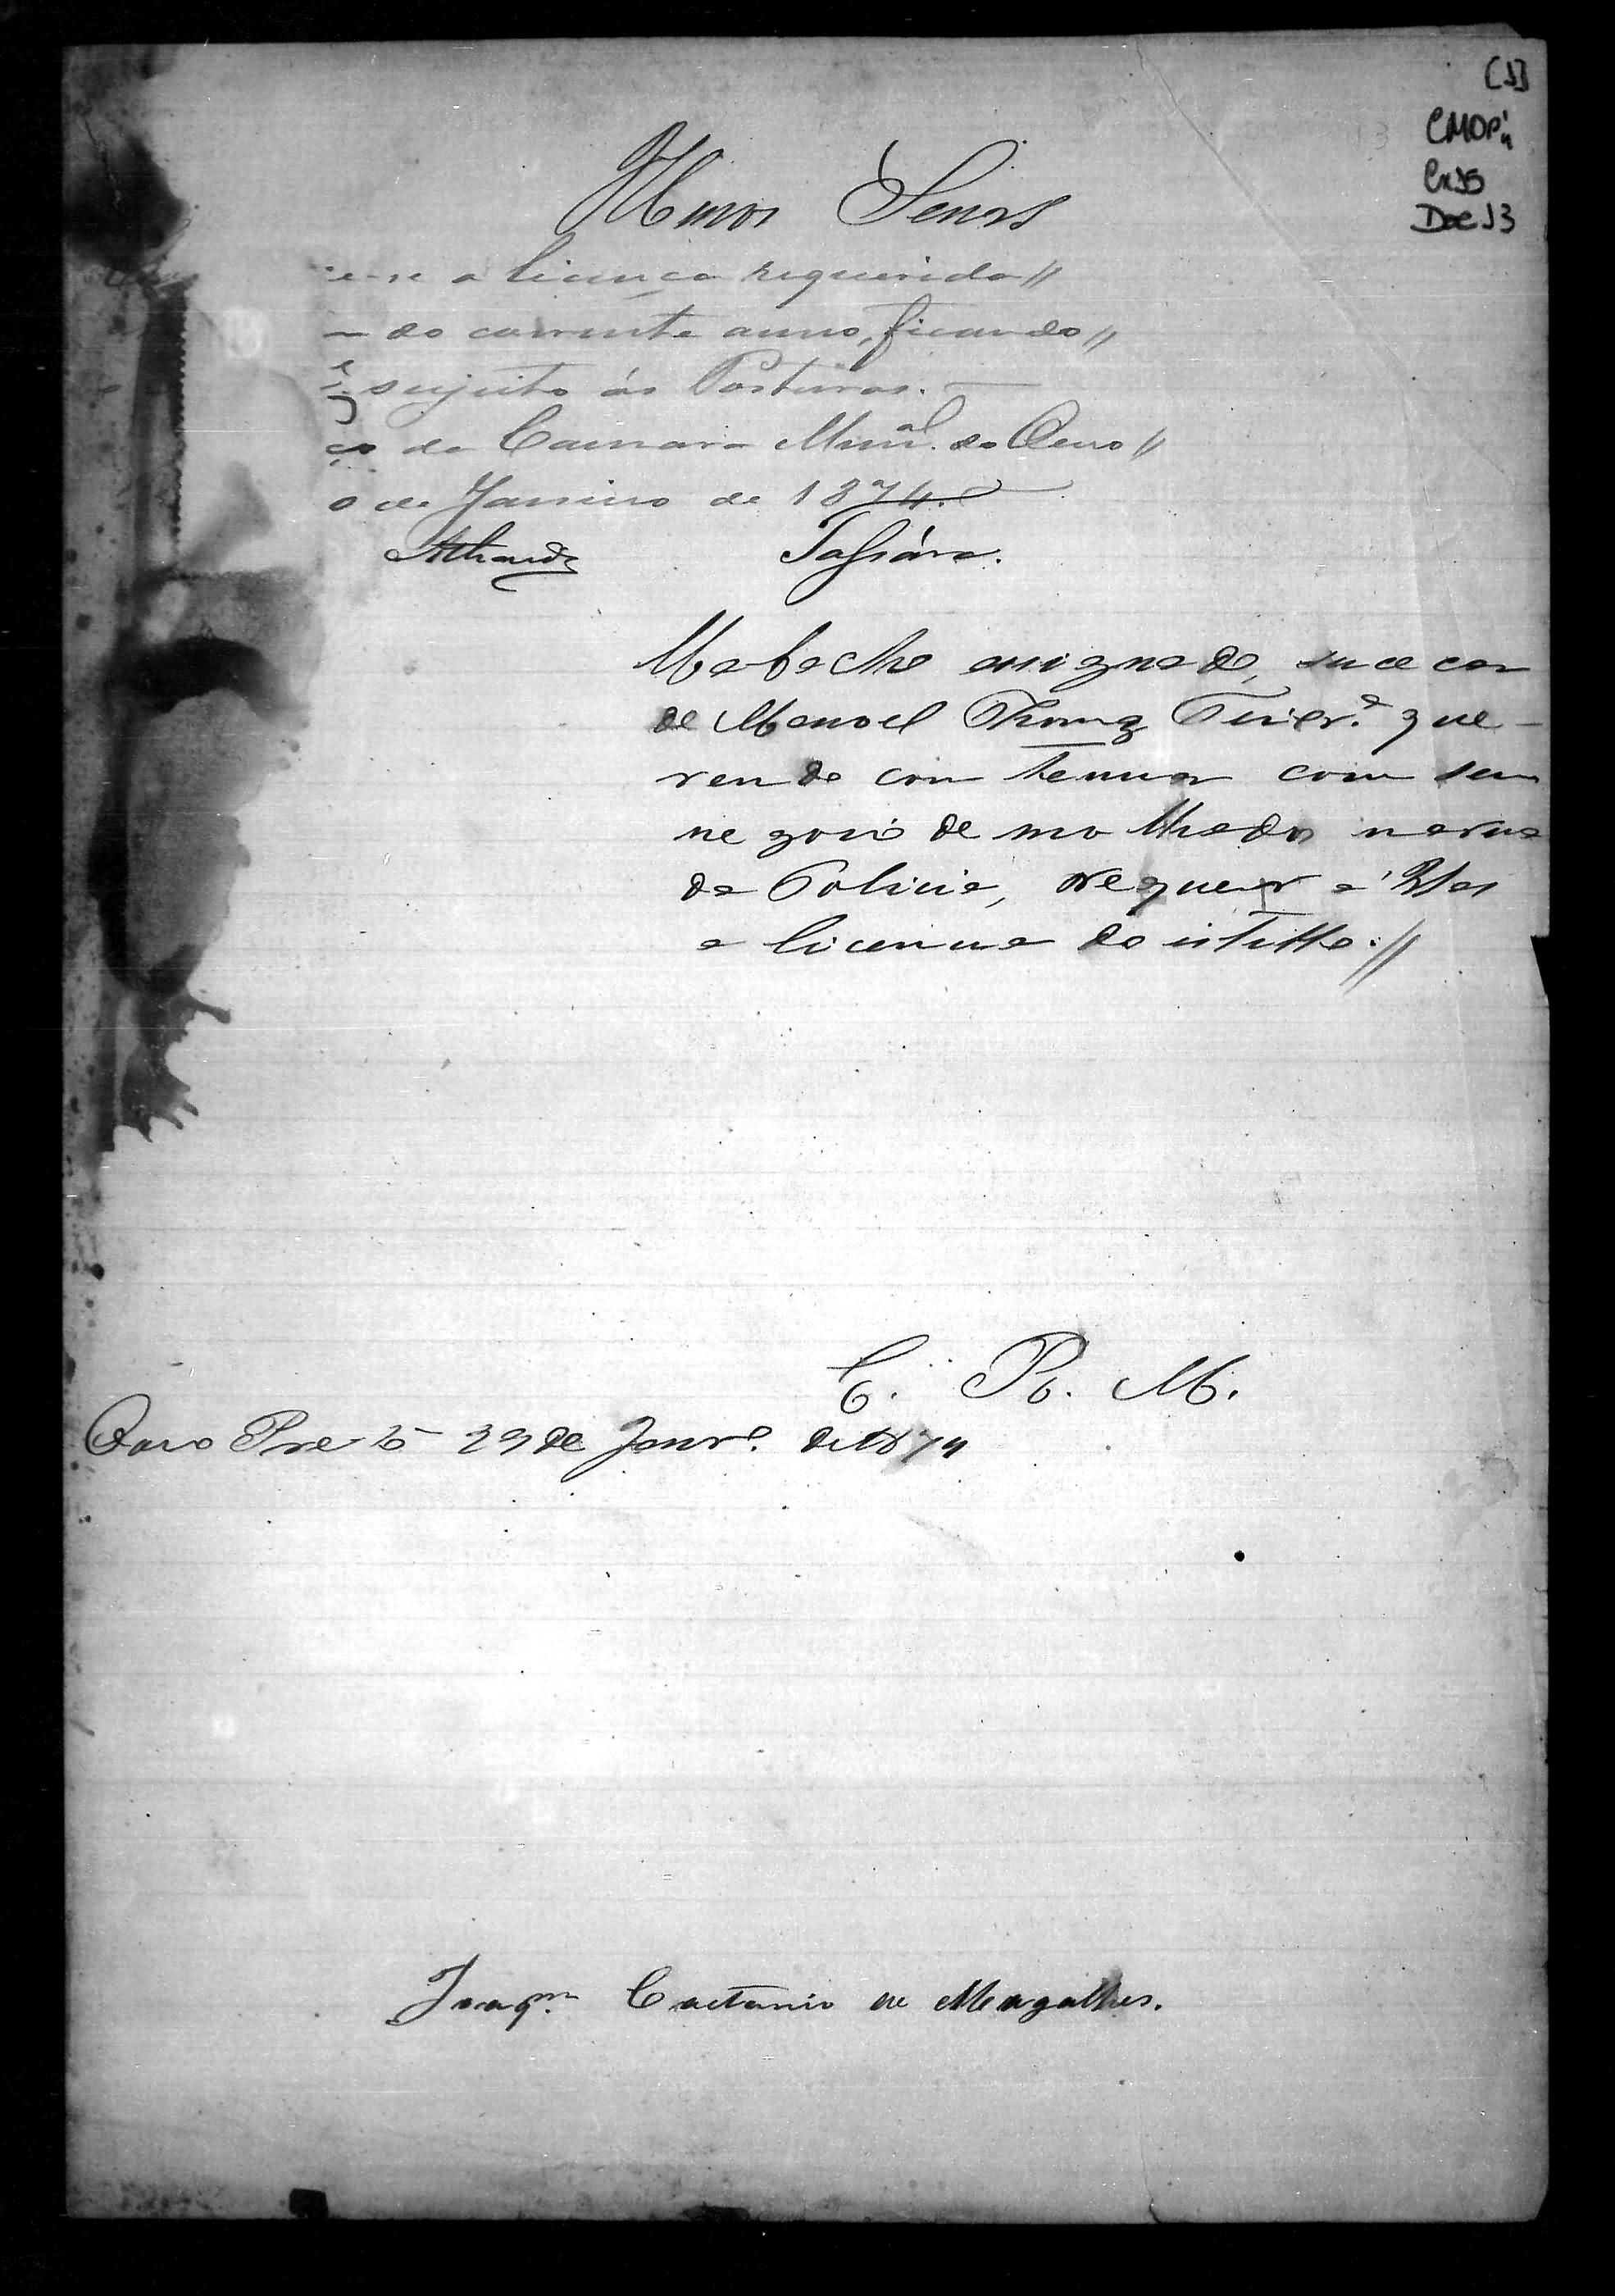 [1]
CMOP
Cx 15
Doc 13
Illmos Senrs
e-se a licença requerida //
do corrente anno, ficando //
sujeito ás Posturas. —
ço da Camara Munal. do Ouro //
o de Janeiro de 1874.
O abacho assignado, sucecor
de Manoel Thomaz que-
rendo contenuar com seu
negocio de molhados narua
da Policia, requer a Vas
a licenca do istillo. //
E. R. M.
Ouro Preto 29 de Janro. de 1874
Joaqm. Caetano de Magalhes.